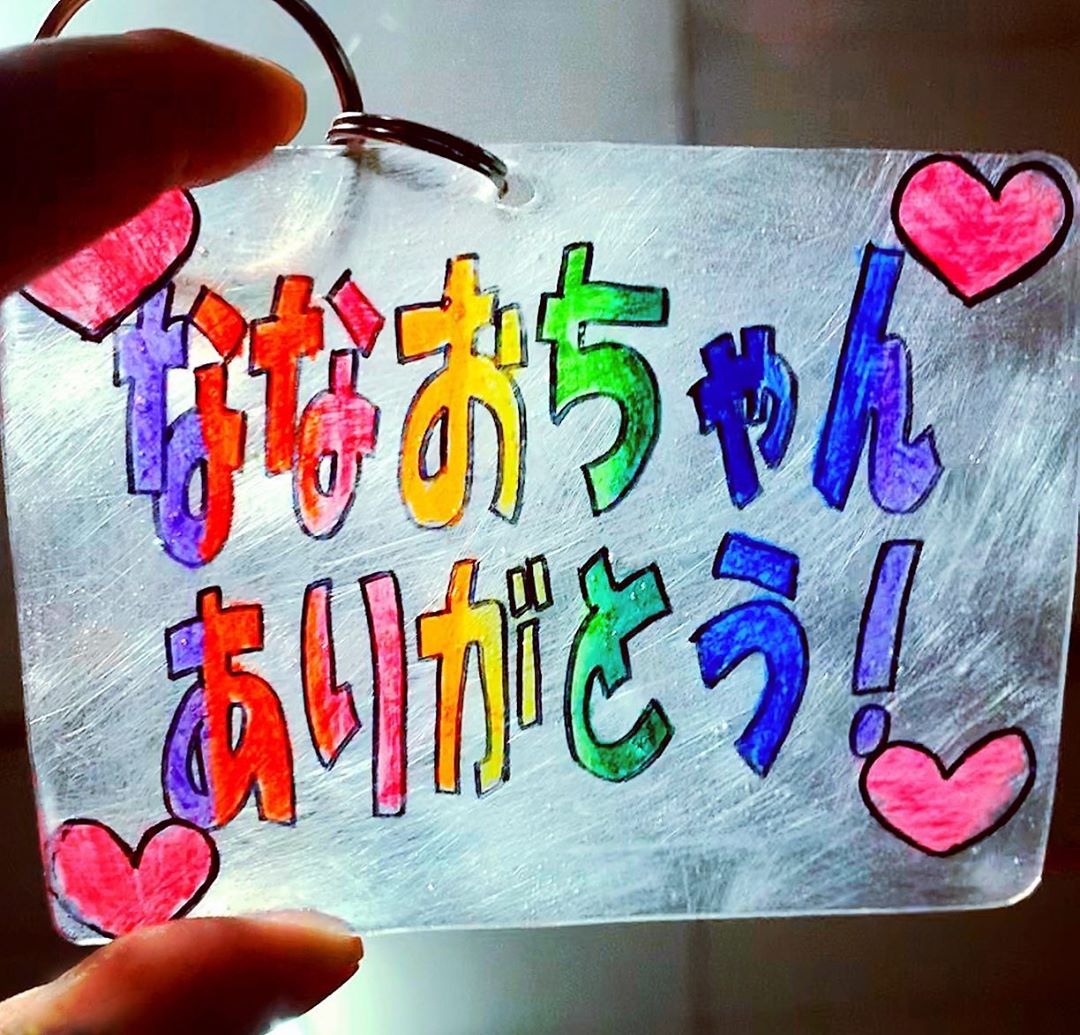 ななおちゃん
ありがとう!